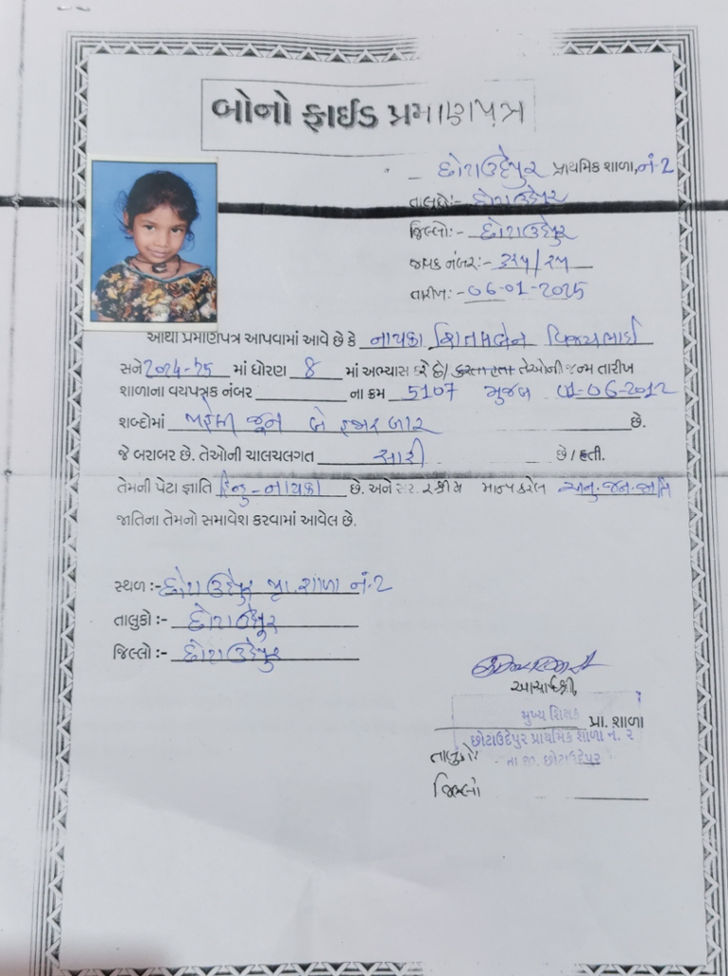 બોનો ફાઈડ પ્રમાણપત્ર
છોટાઉદેપુર પ્રાથમિક શાળા, નં-2
તાલુકો:- છોટાઉદેપુર
જિલ્લો:- છોટાઉદેપુર
જાવક નંબર:-
તારીખ:- 06-01-2025
આથી પ્રમાણપત્ર આપવામાં આવે છે કે નાયકા શિતલબેન વિજયભાઈ
સને 2024-25 માં ધોરણ 8 માં અભ્યાસ કરે છે/ કરતા હતા તેઓની જન્મ તારીખ
શાળાના વયપત્રક નંબર ના ક્રમ 5107 મુજબ 01-06-2012
શબ્દોમાં પહેલી જૂન બે હજાર બાર છે.
જે બરાબર છે. તેઓની ચાલચલગત સારી છે / હતી.
તેમની પેટા જ્ઞાતિ હિન્દુ-નાયકા છે. અને સરકારશ્રીએ માન્ય કરેલ અનુ.જન.જાતિ
જાતિના તેમનો સમાવેશ કરવામાં આવેલ છે.
સ્થળ:- છોટાઉદેપુર પ્રા. શાળા નં-2
તાલુકો:- છોટાઉદેપુર
જિલ્લો:- છોટાઉદેપુર
આચાર્યશ્રી,
મુખ્ય શિક્ષક
પ્રા. શાળા
છોટાઉદેપુર પ્રાથમિક શાળા નં. ૨
તાલુકો:
તા જી. છોટાઉદેપુર
જિલ્લો